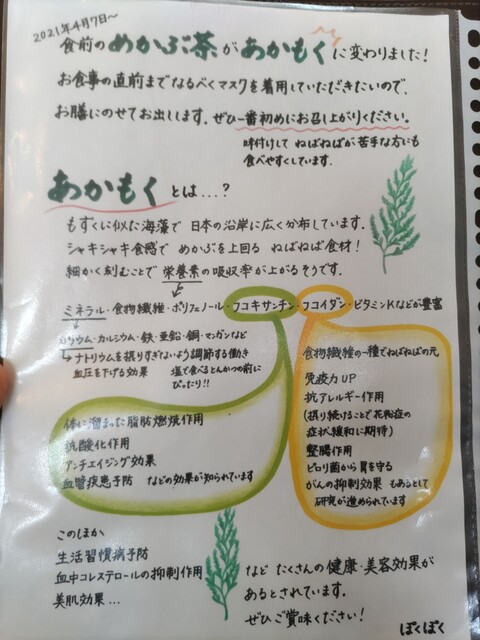 2021年4月7日～
食前のめかぶ茶があかもくに変わりました!
お食事の直前までなるべくマスクを着用していただきたいので、
お膳にのせてお出しします。ぜひ一番初めにお召し上がりください。
味付けして ねばねばが苦手な方にも
食べやすくしています。
あかもくとは…?
もずくに似た海藻で 日本の沿岸に広く分布しています。
シャキシャキ食感で めかぶを上回る ねばねば食材!
細かく刻むことで 栄養素の吸収率が上がるそうです。
ミネラル・食物繊維・ポリフェノール・フコキサンチン・フコイダン・ビタミンKなどが豊富
カリウム・カルシウム・鉄・亜鉛・銅・マンガンなど
ナトリウムを摂りすぎないよう調節する働き
血圧を下げる効果 塩で食べるとんかつの前に
ぴったり!!
体に溜まった脂肪燃焼作用
抗酸化作用
アンチエイジング効果
血管疾患予防 などの効果が知られています
食物繊維の一種でねばねばの元
免疫力UP
抗アレルギー作用
(摂り続けることで花粉症の
症状緩和に期待)
整腸作用
ピロリ菌から胃を守る
がんの抑制効果 もあるとして
研究が進められています
このほか
生活習慣病予防
血中コレステロールの抑制作用
美肌効果…
など たくさんの健康・美容効果が
あるとされています。
ぜひご賞味ください!
ぽくぽく